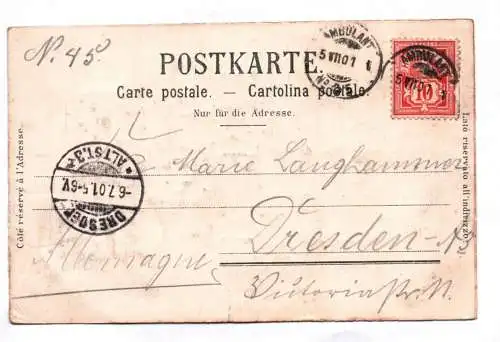 N. 45.
AMBULANT
5 VII 01
AMBULANT
5 VII 01
10
POSTKARTE.
Carte postale. — Cartolina postale.
Nur für die Adresse.
Côté réservé à l'Adresse.
Lato riservato all'indirizzo.
DRESDEN
ALTST. 3
-6.7.01. 5-6V.
Marie Langhammer
Dresden-
Allemagne
Victoriastr.